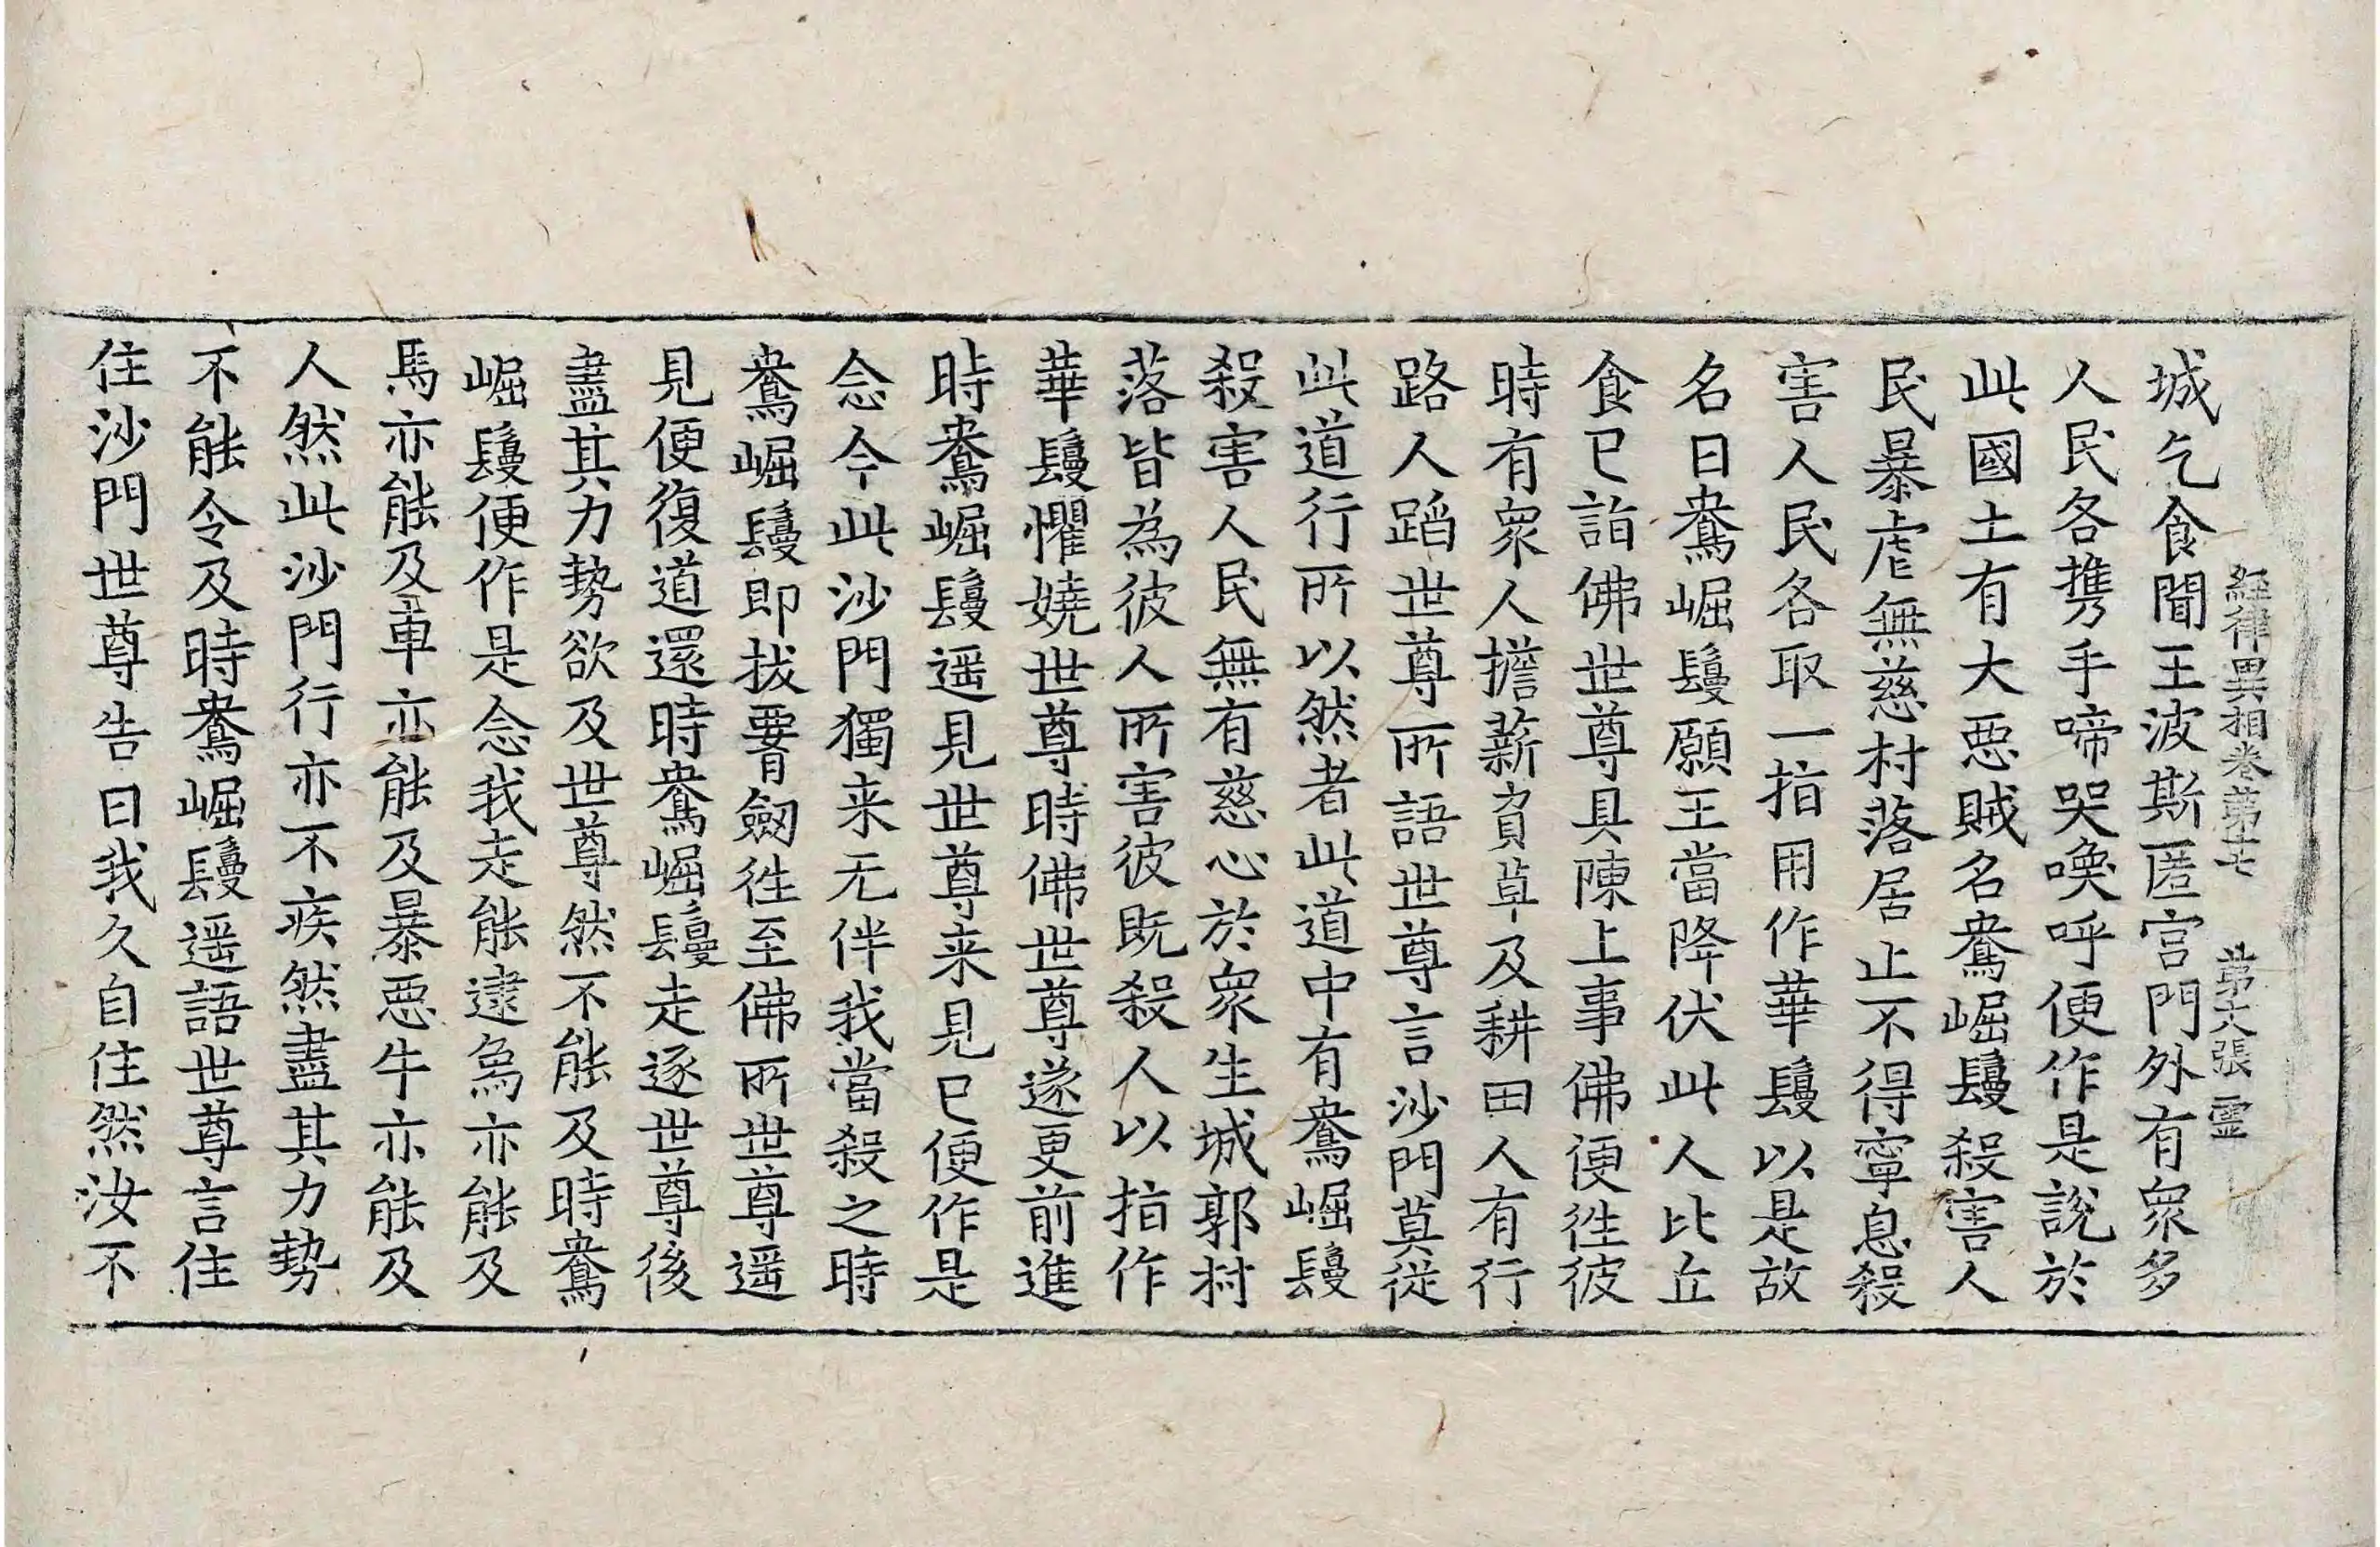 經律異相卷第十七 第十八張 靈
城乞食聞王波斯匿宫門外有衆多
人民各携手啼哭喚呼便作是說於
此國土有大惡賊名鴦崛鬘殺害人
民暴虐無慈村落居止不得寧息殺
害人民各取一指用作華鬘以是故
名曰鴦崛鬘願王當降伏此人比丘
食已詣佛世尊具陳上事佛便徃彼
時有衆人擔薪負草及耕田人有行
路人蹈世尊所語世尊言沙門莫從
此道行所以然者此道中有鴦崛鬘
殺害人民無有慈心於衆生城郭村
落皆為彼人所害彼既殺人以指作
華鬘懼嬈世尊時佛世尊遂更前進
時鴦崛鬘遥見世尊来見已便作是
念今此沙門獨来无伴我當殺之時
鴦崛鬘即拔腰劒徃至佛所世尊遥
見便復道還時鴦崛鬘走逐世尊後
盡其力勢欲及世尊然不能及時鴦
崛鬘便作是念我走能逮象亦能及
馬亦能及車亦能及暴惡牛亦能及
人然此沙門行亦不疾然盡其力勢
不能令及時鴦崛鬘遥語世尊言住
住沙門世尊告曰我久自住然汝不